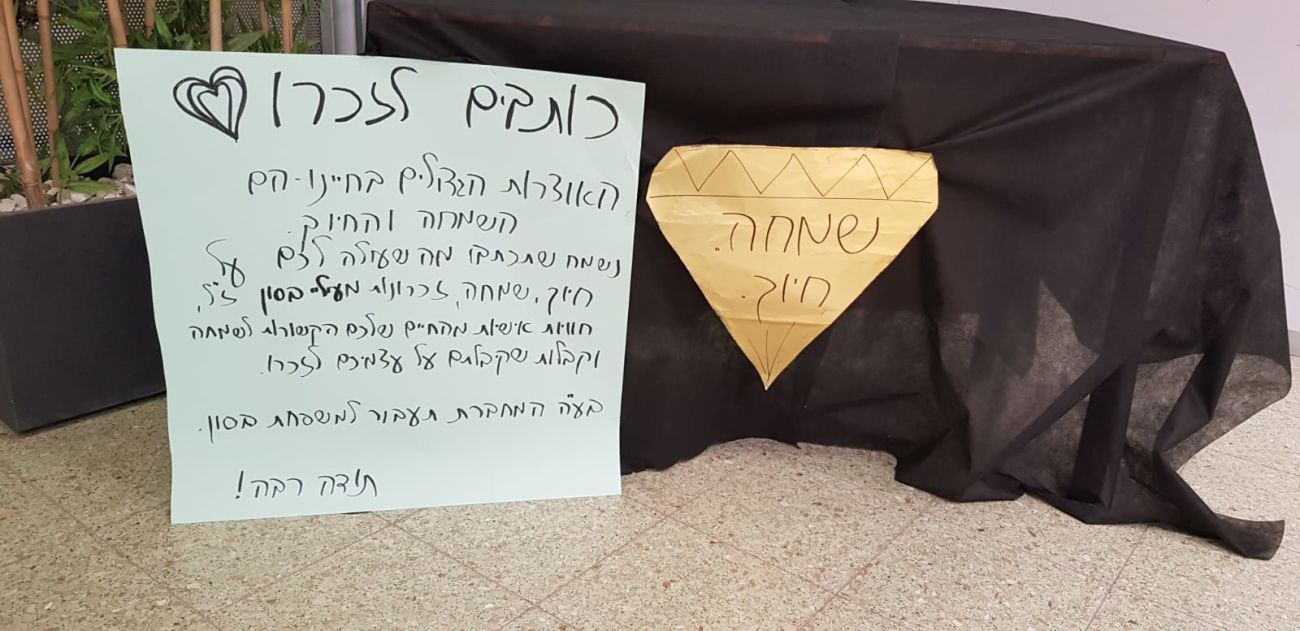 כותבים לזכרו
האוצרות הגדולים בחיינו - הם
השמחה והחיוך.
נשמח שתכתבו מה שעולה לכם על
חיוך, שמחה, זכרונות מעילי בסון ז"ל,
חוויות אישיות מהחיים שלכם הקשורות לשמחה
וקבלות שקבלתם על עצמיכם לזכרו.
בע"ה המחברת תעבור למשפחת בסון.
תודה רבה!
שמחה.
חיוך.